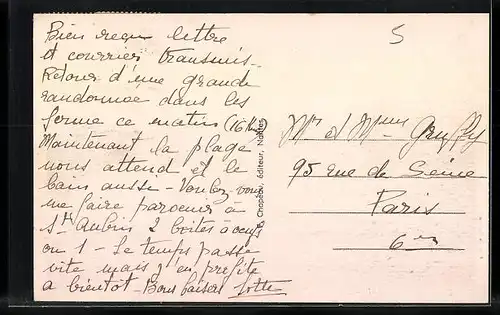 Bien reçu lettre
et courrier transmis -
Retour d'une grande
randonnée dans les
ferme ce matin (16 km)
Maintenant la plage
nous attend et le
bain aussi - Voulez-vous
me faire parvenir à
St Aubin 2 boites à oeufs
ou 1 - Le temps passe
vite mais j'en profite
à bientôt - Bons baisers Lotte
Chapeau, éditeur, Nantes
5
Mr et Mme
95 rue de Seine
Paris
6e